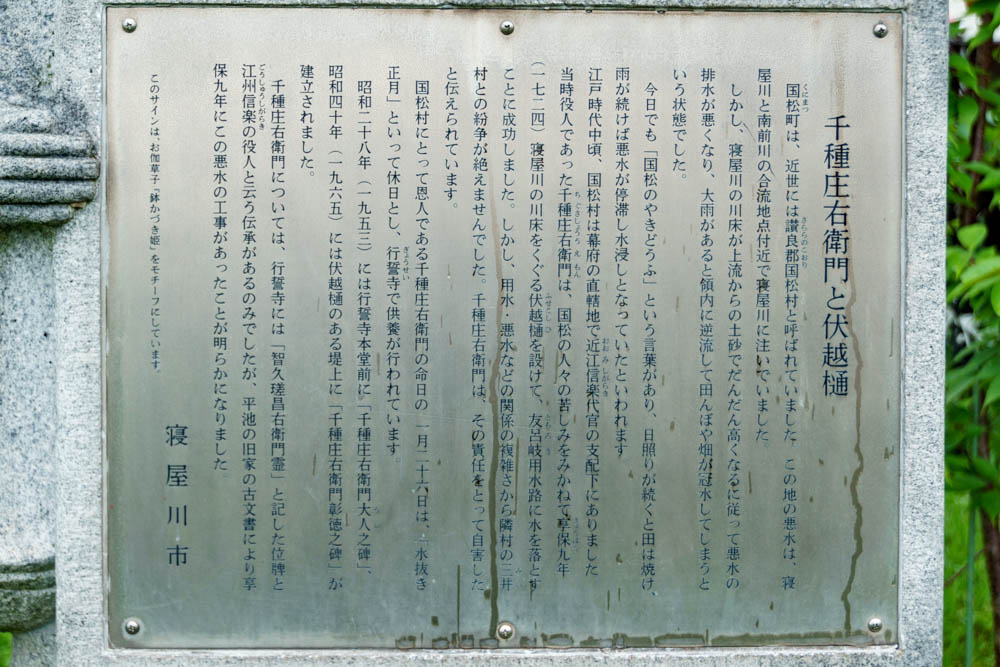 千種庄右衛門と伏越樋
国松町は、近世には讃良郡国松村と呼ばれていました。この地の悪水は、寝
屋川と南前川の合流地点付近で寝屋川に注いでいました。
しかし、寝屋川の川床が上流からの土砂でだんだん高くなるに従って悪水の
排水が悪くなり、大雨があると領内に逆流して田んぼや畑が冠水してしまうと
いう状態でした。
今日でも「国松のやきどうふ」という言葉があり、日照りが続くと田は焼け、
雨が続けば悪水が停滞し水浸しとなっていたといわれます
江戸時代中頃、国松村は幕府の直轄地で近江信楽代官の支配下にありました
当時役人であった千種庄右衛門は、国松の人々の苦しみをみかねて享保九年
(一七二四)寝屋川の川床をくぐる伏越樋を設けて、友呂岐用水路に水を落とす
ことに成功しました。しかし、用水・悪水などの関係の複雑さから隣村の三井
村との紛争が絶えませんでした。千種庄右衛門は、その責任をとって自害した
と伝えられています。
国松村にとって恩人である千種庄右衛門の命日の一月二十八日は、「水抜き
正月」といって休日とし、行誓寺で供養が行われています。
昭和二十八年(一九五三)には行誓寺本堂前に「千種庄右衛門大人之碑」、
昭和四十年(一九六五)には伏越樋のある堤上に「千種庄右衛門彰徳之碑」が
建立されました。
千種庄右衛門については、行誓寺には「智久瑳昌右衛門霊」と記した位牌と
江州信楽の役人と云う伝承があるのみでしたが、平池の旧家の古文書により享
保九年にこの悪水の工事があったことが明らかになりました
寝屋川市
このサインは、お伽草子『鉢かづき姫』をモチーフにしています。